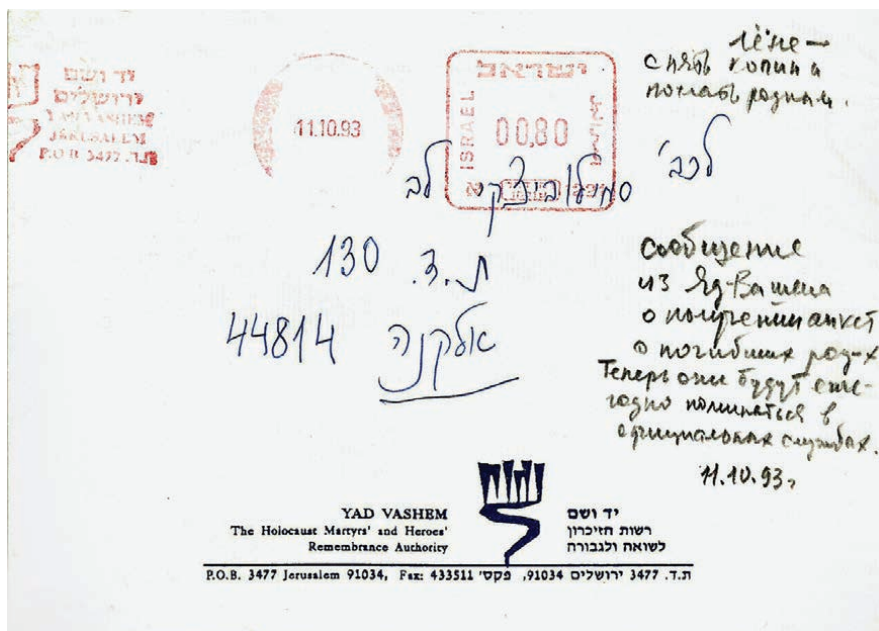 יד ושם
ירושלים
YAD VASHEM
JERUSALEM
P.O.B 3477 ת.ד.
11.10.93
ישראל
ISRAEL
00.80
Лёне —
снять копии и
послать родным.
לכב'
לב
ת.ד. 130
אלקנה 44814
Сообщение
из Яд-Вашема
о получении анкет
о погибших род-х
Теперь они будут еже-
годно поминаться в
официальных службах.
11.10.93г
YAD VASHEM
The Holocaust Martyrs' and Heroes'
Remembrance Authority
יד ושם
רשות הזיכרון
לשואה ולגבורה
P.O.B. 3477 Jerusalem 91034, Fax: 433511 פקס' ,91034 ירושלים 3477 ת.ד.